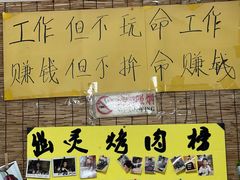 工作但不玩命工作
赚钱但不拚命赚钱
幽灵烤肉榜